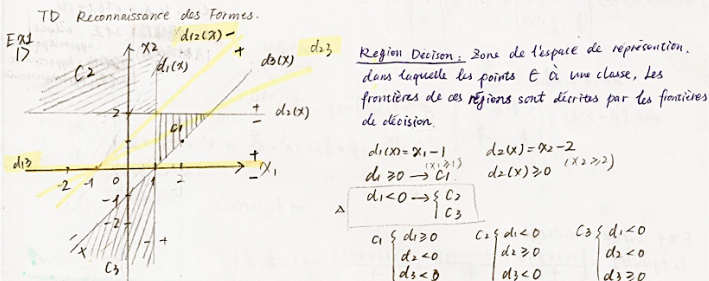 TD Reconnaissance des Formes.
Ex1
1)
d12(x) -
+
d23
x2
d1(x)
d3(x)
C2
2
+
-
d2(x)
C1
d13
+
-
x1
-2 -1 0 1 2
-1
-2
- +
- +
C3
Region Décison : Zone de l'espace de représention.
dans laquelle les points ∈ à une classe, Les
frontières de ces régions sont décrites par les frontières
de décision.
d1(x) = x1 - 1 d2(x) = x2 - 2
(x1 ≥ 1) (x2 ≥ 2)
d1 ≥ 0 → C1. d2(x) ≥ 0
d1 < 0 → { C2
C3
C1 { d1 ≥ 0 C2 { d1 < 0 C3 { d1 < 0
d2 < 0 d2 ≥ 0 d2 < 0
d3 < 0 d3 < 0 d3 ≥ 0